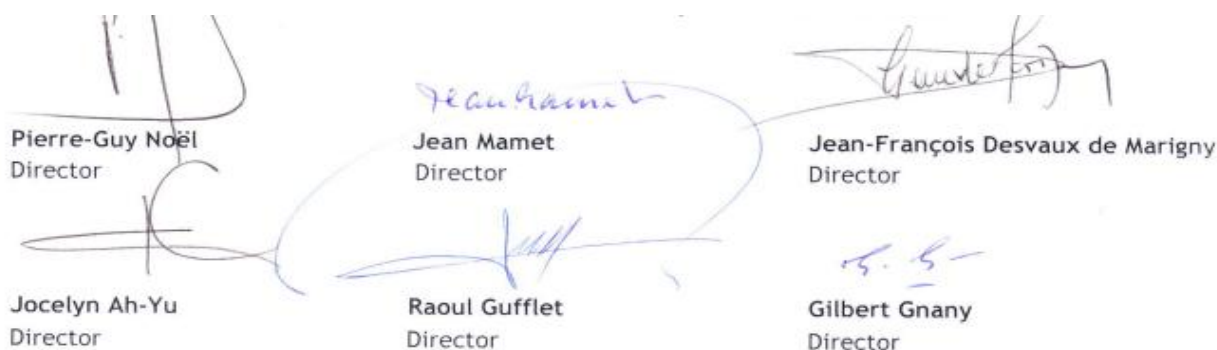 Pierre-Guy Noël
Director
Jean Mamet
Director
Jean-François Desvaux de Marigny
Director
Jocelyn Ah-Yu
Director
Raoul Gufflet
Director
Gilbert Gnany
Director